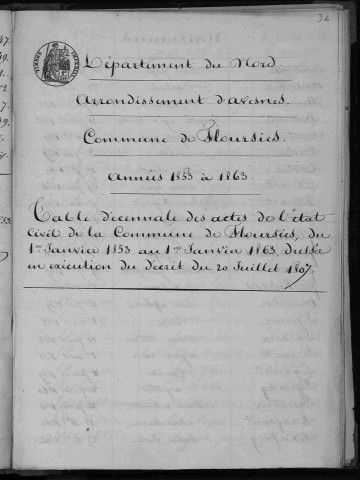 36
Département du Nord.
Arrondissement d'avesnes.
Commune de Floursies.
Années 1853 à 1863.
Table décennale des actes de l'état
civil de la Commune de Floursies, du
1er Janvier 1853 au 1er Janvier 1863, dressée
en exécution du décret du 20 Juillet 1807.